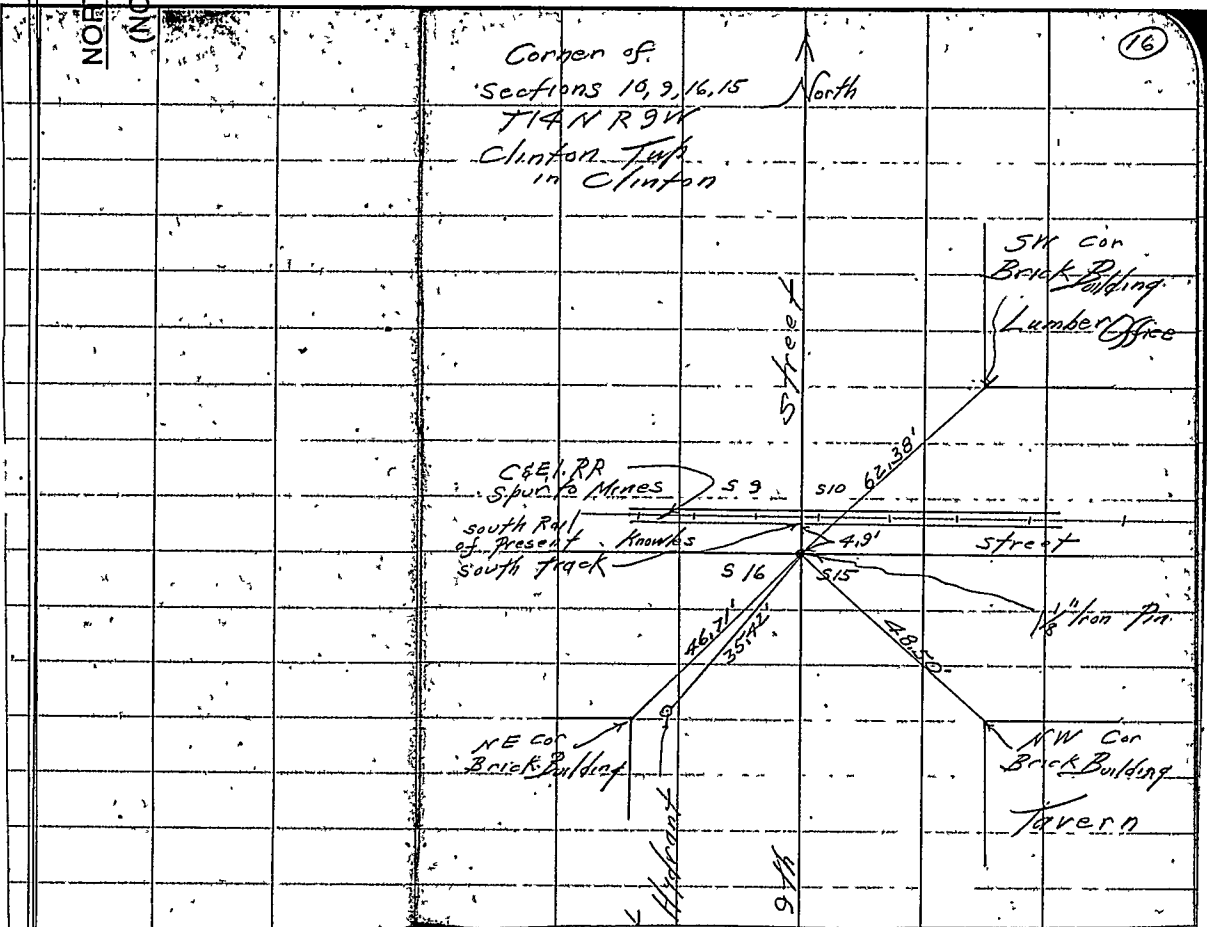 NOR
(NO
16
Corner of
Sections 10, 9, 16, 15
T14N R9W
Clinton Twp
in Clinton
North
SW Cor
Brick Building
Lumber Office
Street
62.38'
C&E.I. RR
Spur to Mines
S 9
S10
South Rail
of Present
South Track
Knowles
4.9'
Street
S 16
S15
1 1/8" Iron Pin
46.71'
35.42'
48.50'
NE Cor
Brick Building
NW Cor
Brick Building
Tavern
Hydrant
9th